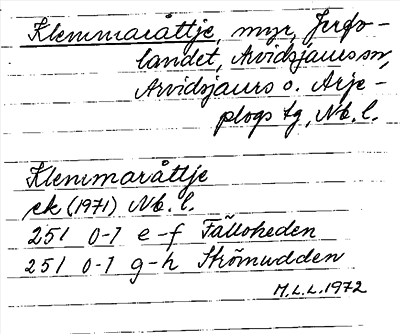 Klemmaråttje, myr, Jerfo-
landet, Arvidsjaurs sn,
Arvidsjaurs o. Arje-
plogs tg, Nb. l.
Klemmaråttje
ek (1971) Nb. l.
25I 0-1 e-f Fälloheden
25I 0-1 g-h Strömudden
M.L.L. 1972